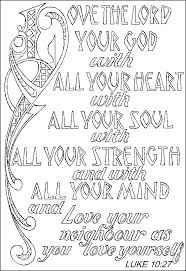 LOVE THE LORD
YOUR GOD
with
ALL YOUR HEART
with
ALL YOUR SOUL
with
ALL YOUR STRENGTH
and with
ALL YOUR MIND
and
Love your
neighbour as
you love yourself
LUKE 10:27